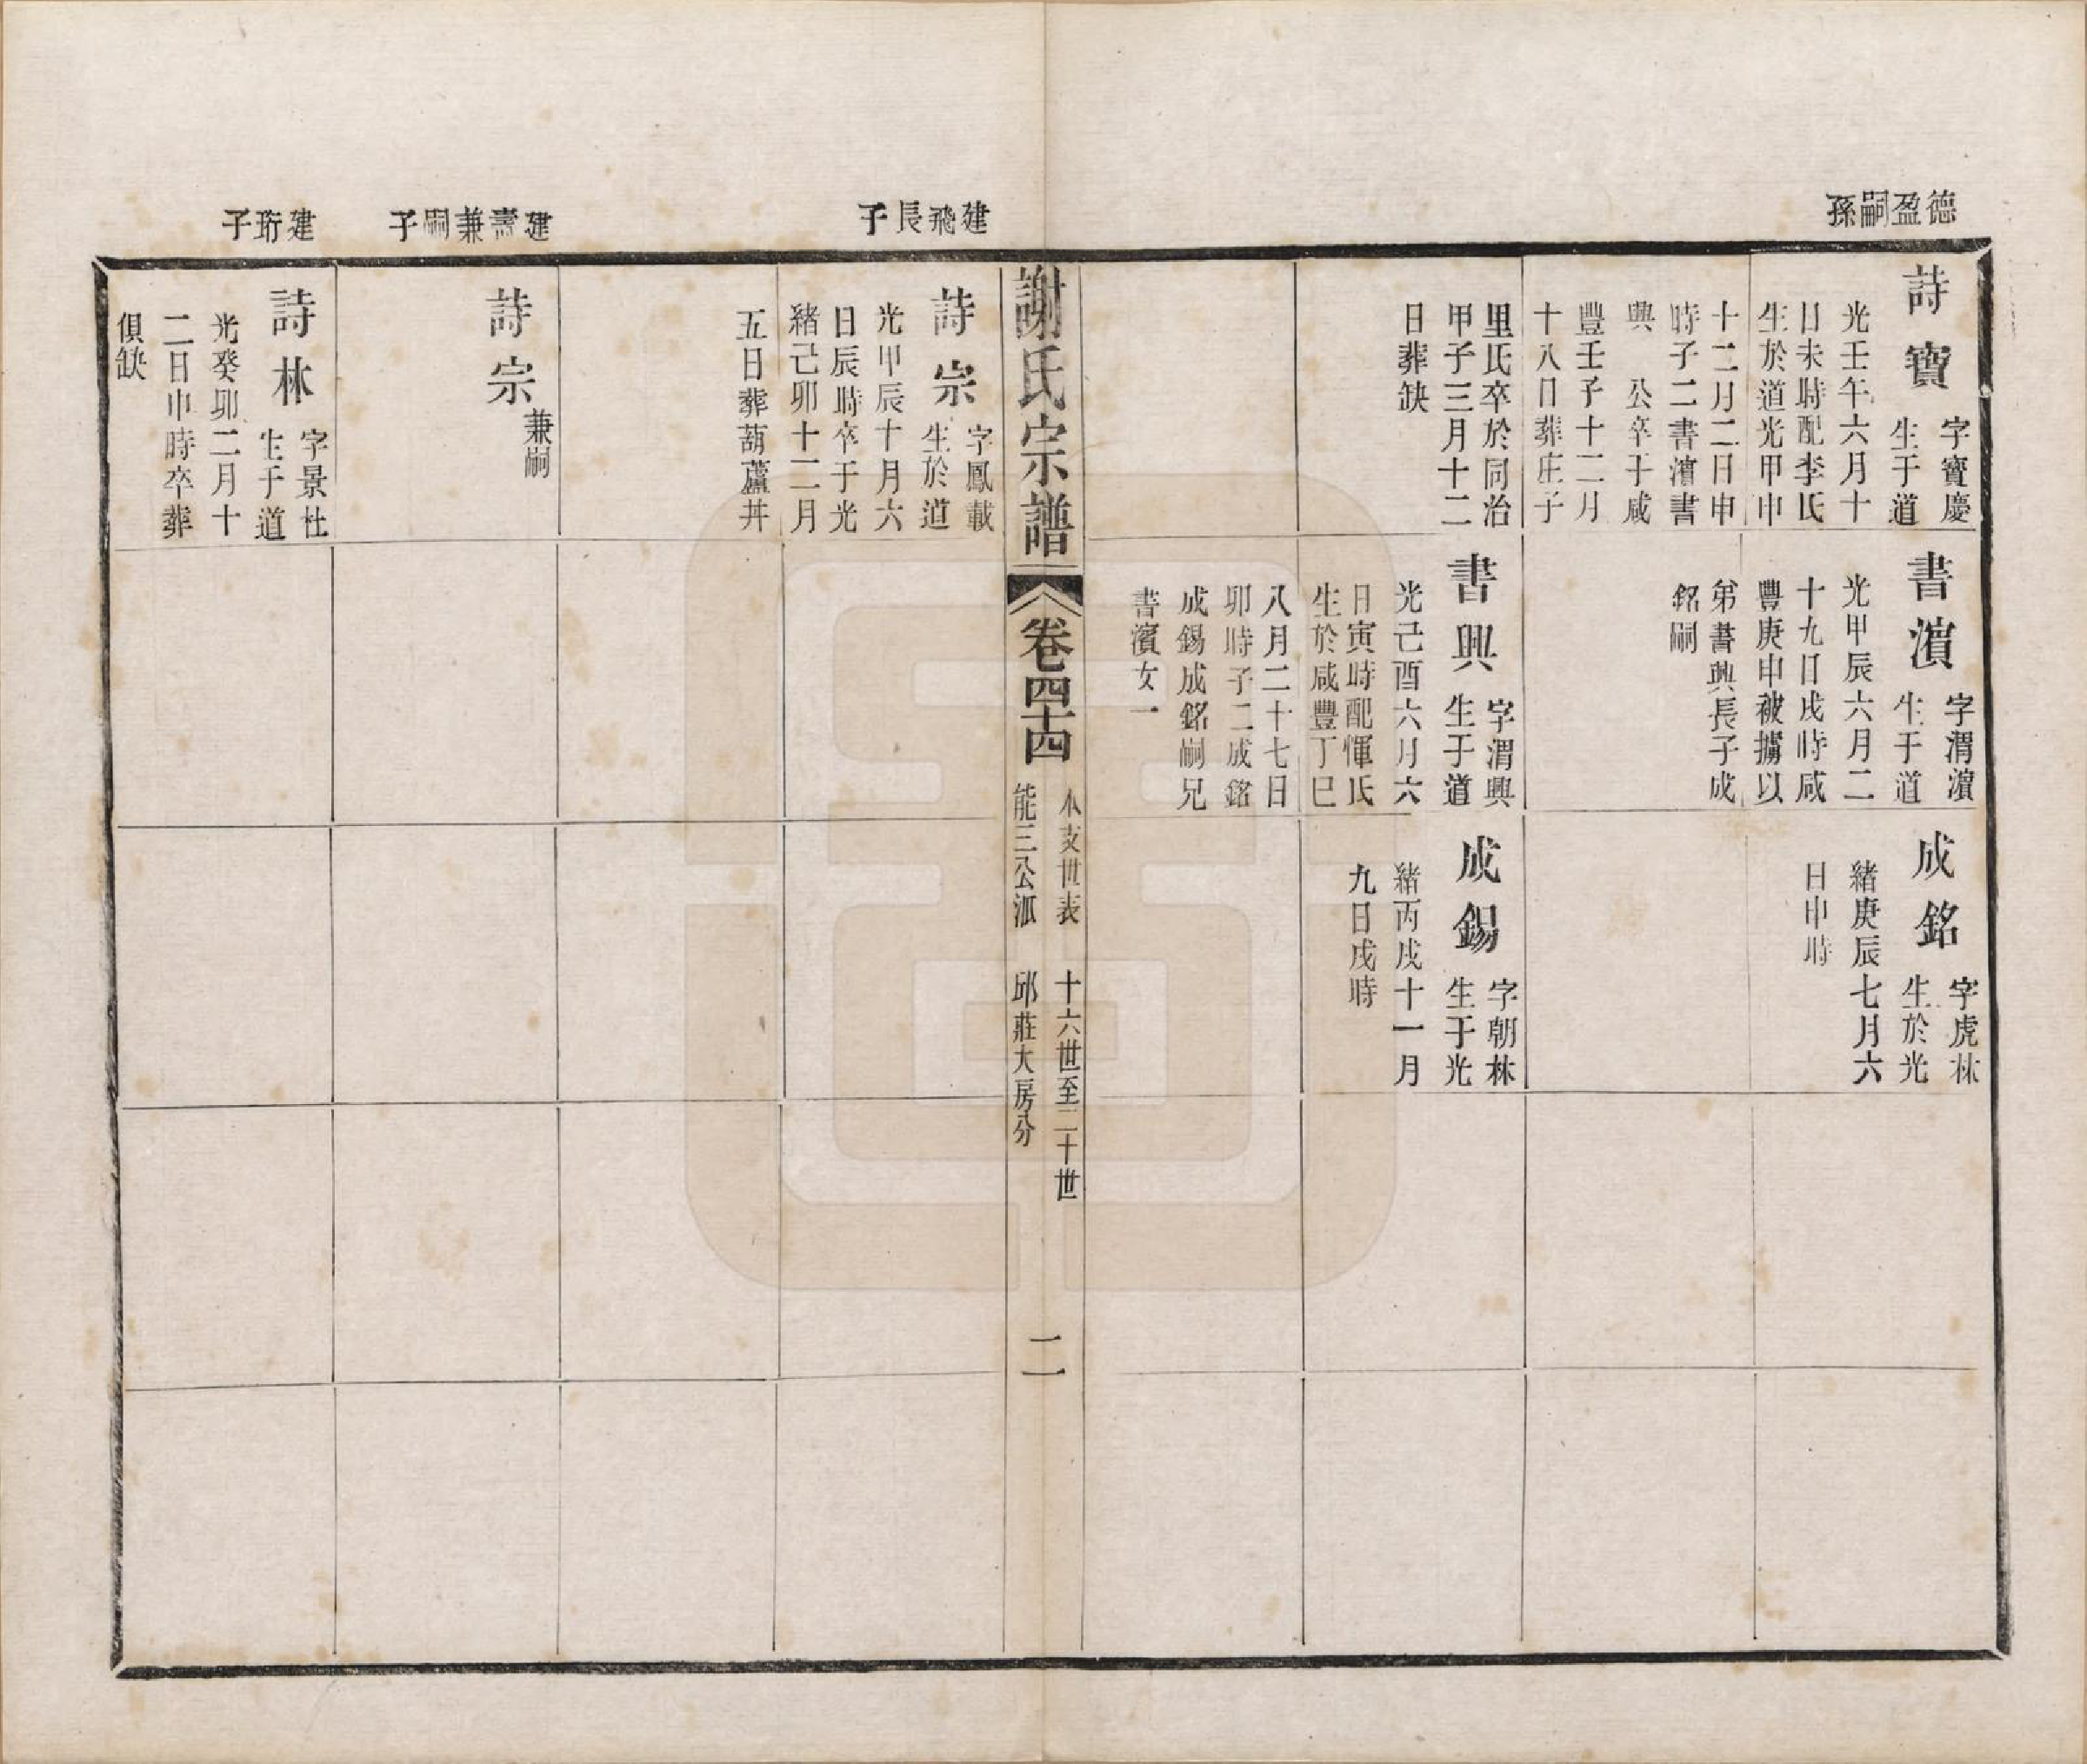 德盈嗣孫
詩寶
字寶慶
生于道
光壬午六月十
日未時配李氏
生於道光甲申
十二月二日申
時子二書濱書
興　公卒于咸
豐壬子十二月
十八日葬庄子
里氏卒於同治
甲子三月十二
日葬缺
書濱
字渭濱
生于道
光甲辰六月二
十九日戌時咸
豐庚申被擄以
弟書興長子成
銘嗣
書興
字渭興
生于道
光己酉六月六
日寅時配惲氏
生於咸豐丁巳
八月二十七日
卯時子二成銘
成錫成銘嗣兄
書濱女一
成銘
字虎林
生於光
緒庚辰七月六
日申時
成錫
字朝林
生于光
緒丙戌十一月
九日戌時
謝氏宗譜
卷四十四
本支世表　十六世至二十世
能三公派　邱莊大房分
二
建飛長子
詩宗
字鳳載
生於道
光甲辰十月六
日辰時卒于光
緒己卯十二月
五日葬葫蘆丼
建壽兼嗣子
詩宗
兼嗣
建珩子
詩林
字景杜
生于道
光癸卯二月十
二日申時卒葬
俱缺